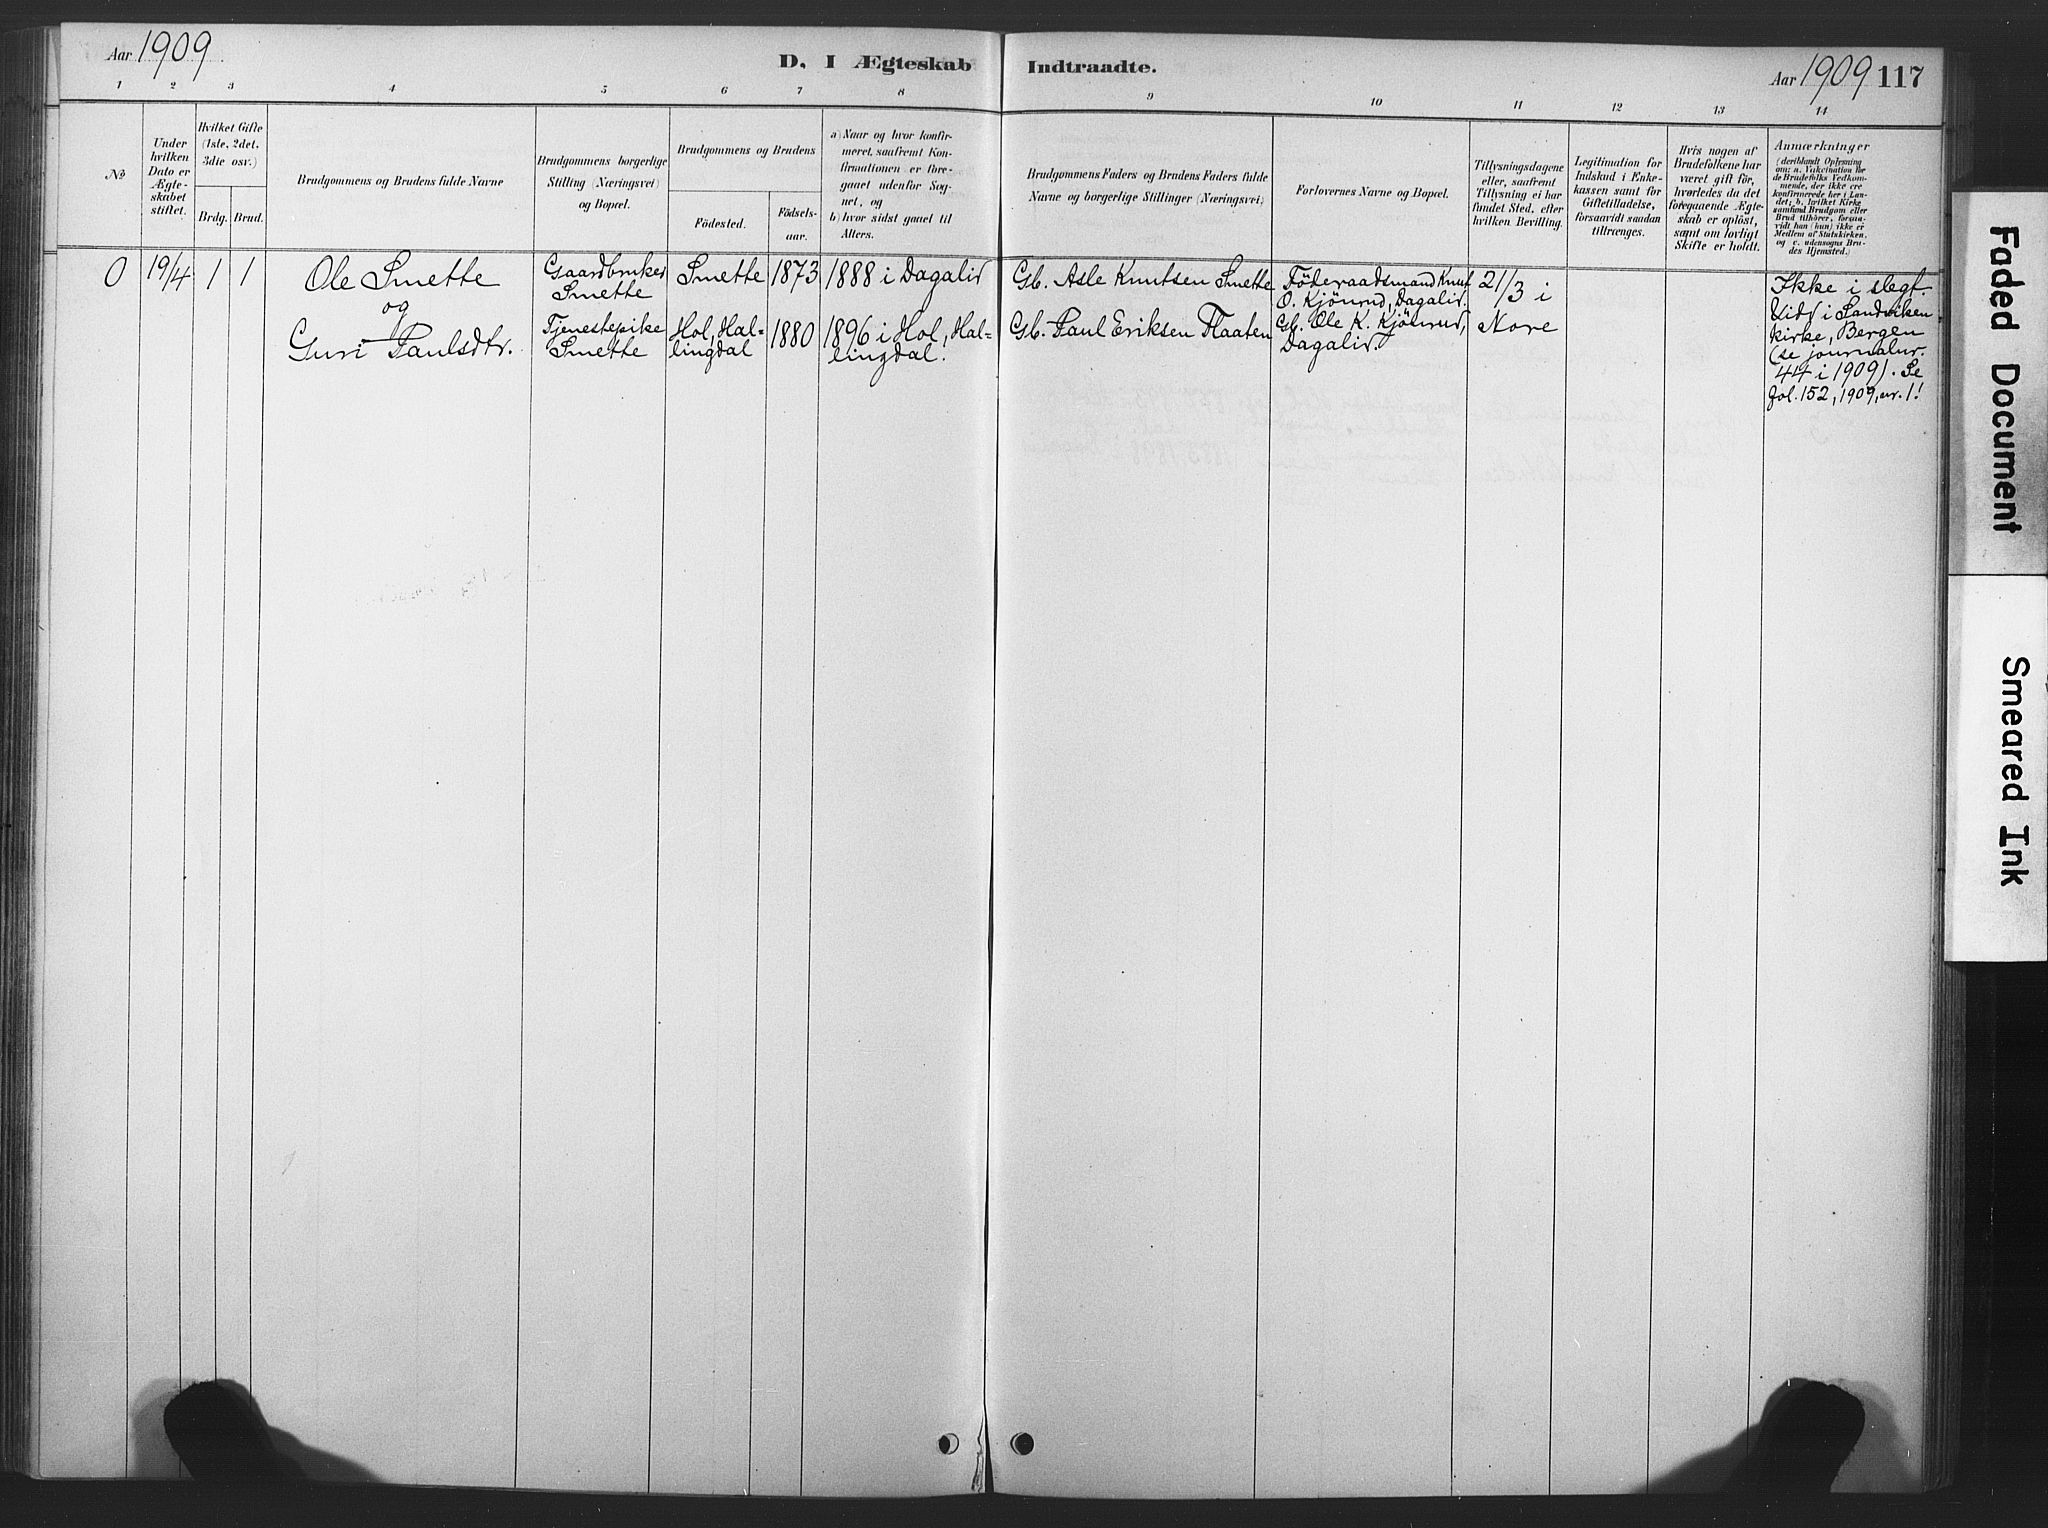 Aar 1909
D. I Ægteskab Indtraadte.
Aar 1909 117
1 2 3 4 5 6 7 8 9 10 11 12 13 14
No
Under
hvilken
Dato er
Ægte-
skabet
stiftet.
Hvilket Gifte
(1ste, 2det,
3die osv.)
Brdg. Brud.
Brudgommens og Brudens fulde Navne
Brudgommens borgerlige
Stilling (Næringsvei)
og Bopæl.
Brudgommens og Brudens
Fødested.
Fødsels-
aar.
a) Naar og hvor konfir-
meret, saafremt Kon-
firmationen er fore-
gaaet udenfor Sog-
net, og
b) hvor sidst gaaet til
Alters.
Brudgommens Faders og Brudens Faders fulde
Navne og borgerlige Stillinger (Næringsvei)
Forlovernes Navne og Bopæl.
Tillysningsdagene
eller, saafremt
Tillysning ei har
fundet Sted, efter
hvilken Bevilling.
Legitimation for
Indskud i Enke-
kassen samt for
Giftetilladelse,
forsaavidt saadan
tiltrænges.
Hvis nogen af
Brudefolkene har
været gift før,
hvorledes da det
foregaaende Ægte-
skab er opløst,
samt om lovligt
Skifte er holdt.
Anmærkninger
(deriblandt Oplysning
om: a. Vakcination for
de Brudefolks Vedkom-
mende, der ikke ere
konfirmerede her i Lan-
det; b. hvilket Kirke
samfund Brudgom eller
Brud tilhører, forsaa-
vidt han (hun) ikke er
Medlem af Statskirken,
og c. udensogns Bru-
des Hjemsted.)
0 19/4 1 1
Ole Smette
og
Guri Paulsdtr.
Gaardbruker
Smette
Tjenestepike
Smette
Smette
Hol, Hal-
lingdal
1873
1880
1888 i Dagalid
1896 i Hol, Hal-
lingdal.
Gb. Asle Knutsen Smette
Gb. Paul Eriksen Flaaten
Föderaadsmand Knut
O. Kjönrud, Dagalid.
Gb. Ole K. Kjönrud,
Dagalid.
21/3 i
Nore
Ikke i slegt.
Vidd i Sandviken
kirke, Bergen
(se journalnr.
44 i 1909). Se
fol. 152, 1909, nr. 1!
Faded Document
Smeared Ink